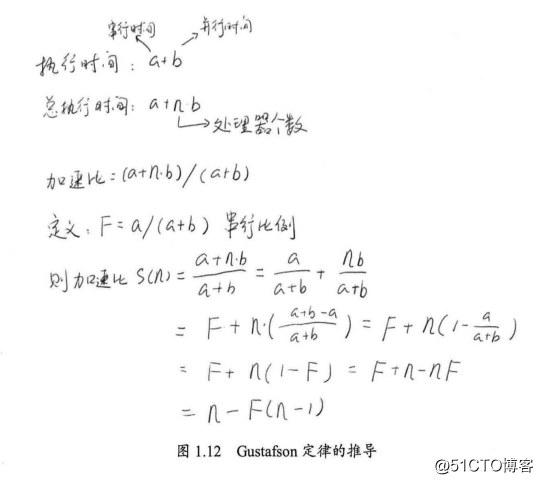 串行时间 并行时间
执行时间：a+b
总执行时间：a+n·b
处理器个数
加速比=(a+n·b)/(a+b)
定义：F=a/(a+b) 串行比例
则加速比 S(n)=\frac{a+n·b}{a+b}=\frac{a}{a+b}+\frac{nb}{a+b}
=F+n·(\frac{a+b-a}{a+b})=F+n(1-\frac{a}{a+b})
=F+n(1-F)=F+n-nF
=n-F(n-1)
图 1.12 Gustafson 定律的推导
@51CTO博客